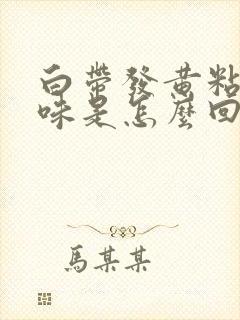 白帶發黃粘
味是怎麼回
馬某某